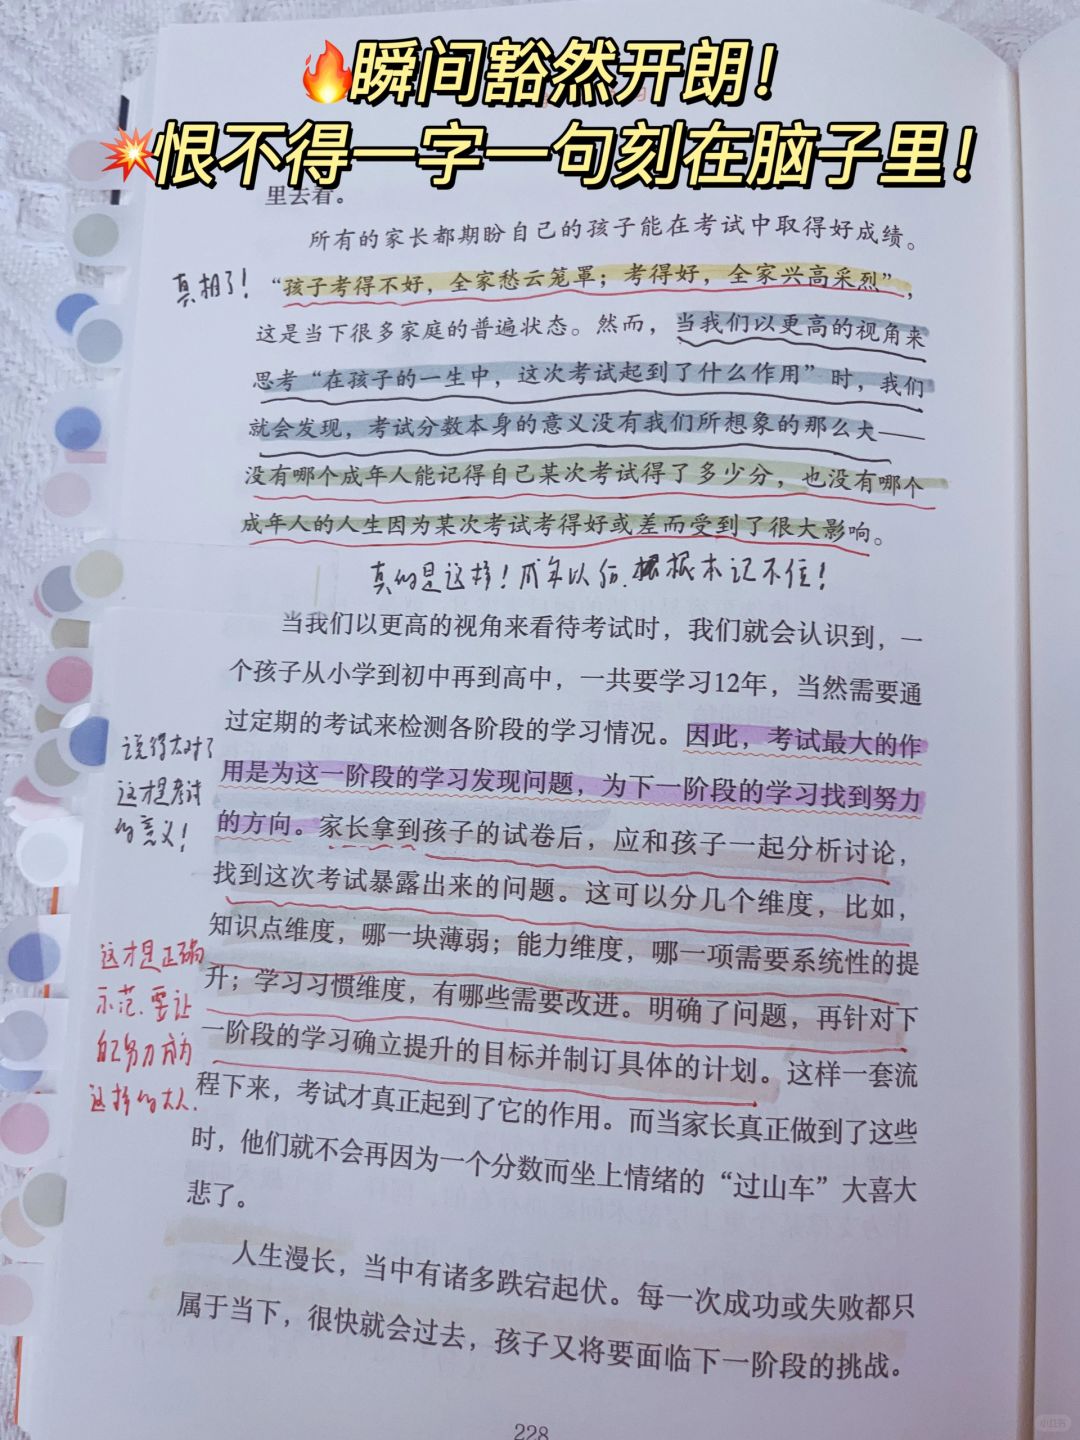 瞬间豁然开朗！
恨不得一字一句刻在脑子里！
里去看。
所有的家长都期盼自己的孩子能在考试中取得好成绩。
真相了！
“孩子考得不好，全家愁云笼罩；考得好，全家兴高采烈”，
这是当下很多家庭的普遍状态。然而，当我们以更高的视角来
思考“在孩子的一生中，这次考试起到了什么作用”时，我们
就会发现，考试分数本身的意义没有我们所想象的那么大——
没有哪个成年人能记得自己某次考试得了多少分，也没有哪个
成年人的人生因为某次考试考得好或差而受到了很大影响。
真的是这样！成年以后，根本记不住！
当我们以更高的视角来看待考试时，我们就会认识到，一
个孩子从小学到初中再到高中，一共要学习12年，当然需要通
过定期的考试来检测各阶段的学习情况。因此，考试最大的作
用是为这一阶段的学习发现问题，为下一阶段的学习找到努力
的方向。家长拿到孩子的试卷后，应和孩子一起分析讨论，
说得太对了
这才是考试
的意义！
找到这次考试暴露出来的问题。这可以分几个维度，比如，
知识点维度，哪一块薄弱；能力维度，哪一项需要系统性的提
升；学习习惯维度，有哪些需要改进。明确了问题，再针对下
一阶段的学习确立提升的目标并制订具体的计划。这样一套流
这才是正确
示范，要让
自己努力成为
这样的大人.
程下来，考试才真正起到了它的作用。而当家长真正做到了这些
时，他们就不会再因为一个分数而坐上情绪的“过山车”大喜大
悲了。
人生漫长，当中有诸多跌宕起伏。每一次成功或失败都只
属于当下，很快就会过去，孩子又将要面临下一阶段的挑战。
228
小红书